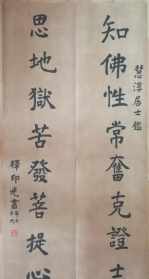 慧居士鑑
知佛性常奮克證
思地獄苦發菩提心
釋印光書